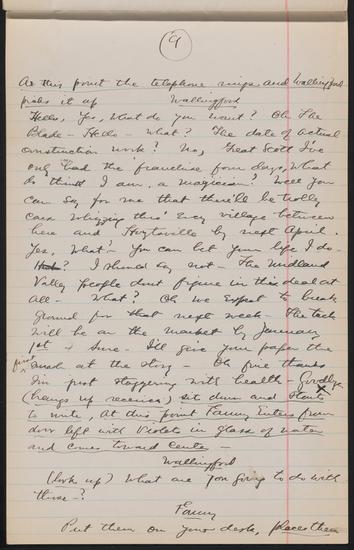 (9)
At this point the telephone rings and Wallingford
picks it up
Wallingford
Hello, Yes, What do you want? Oh The
Blade - Hello - What? The date of actual
construction work? No, Great Scott I've
only had the franchise four days, What
do think I am, a magician? Well you
can say for me that there'll be trolley
cars whizzing thro' every village between
here and by next April.
Yes, What? You can bet your life I do -
I should say not - The Midland
Valley People dont figure in this deal at
all - What? Oh we expect to break
ground for that next week - The stock
will be on the market by January
1st - Sure - I'll give your paper the
first
at the story - Oh fine thanks
I'm just staggering with health - Goodbye
(hangs up receiver) sits down and starts
to write, At this point Fanny Enters from
door left with Violets in glass of water
and comes toward center -
Wallingford
(look up) What are you going to do with
those - ?
Fanny
Put them on your desk, places them